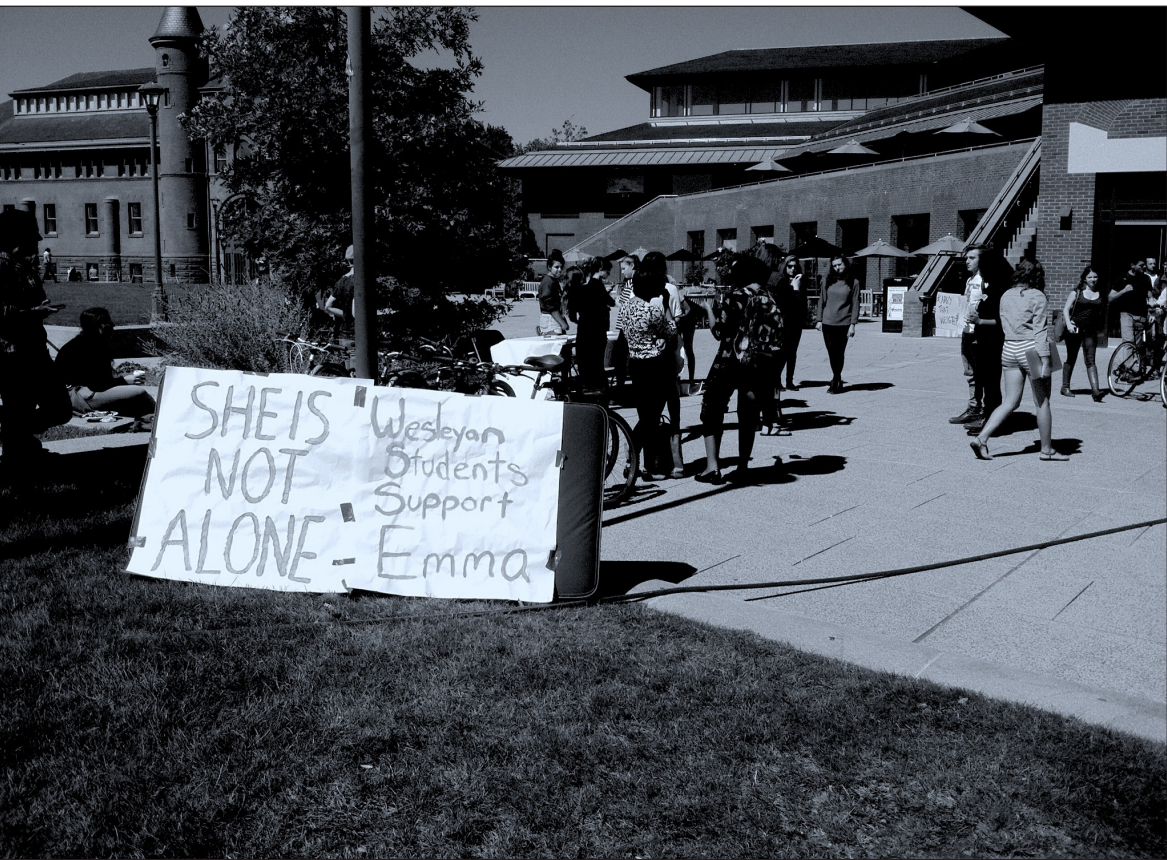 SHE IS
NOT
ALONE -
Wesleyan
Students
Support
Emma